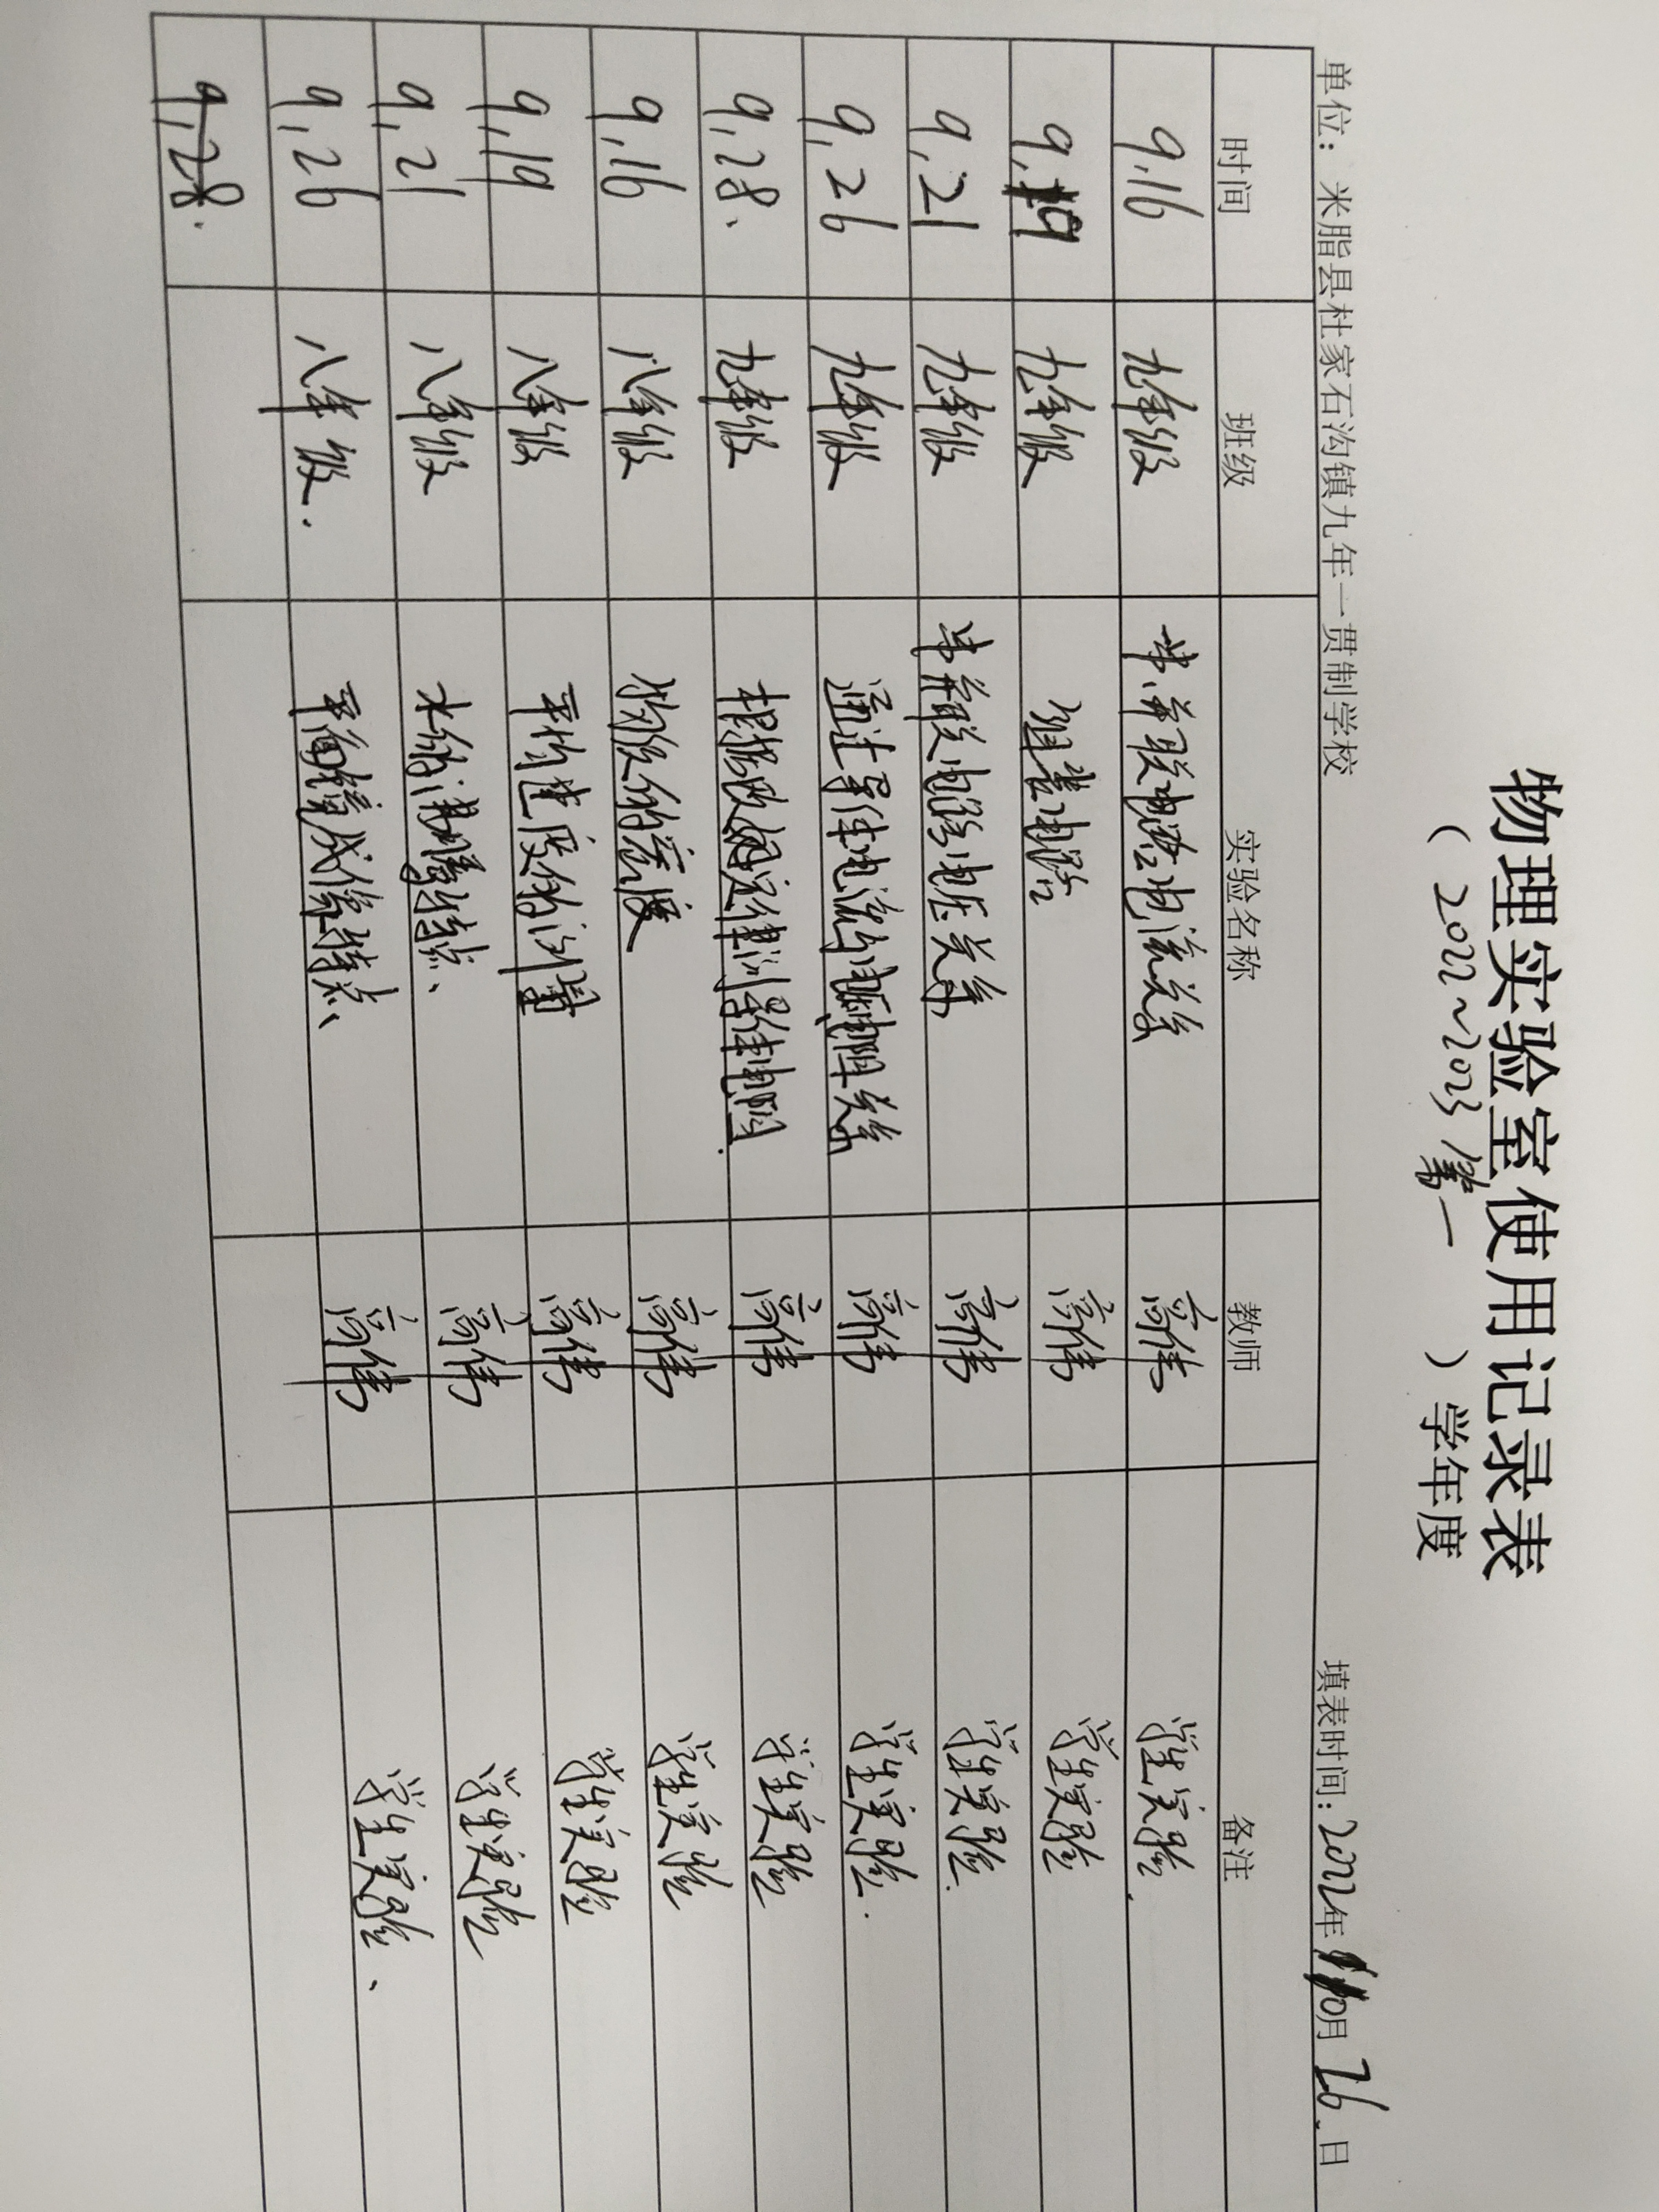 物理实验室使用记录表
（2022~2023第一）学年度
单位：米脂县杜家石沟镇九年一贯制学校 填表时间：2022年10月26日
时间 班级 实验名称 教师 备注
9.16 九年级 串、并联电路电流关系 高伟 学生实验.
9.19 九年级 组装电路 高伟 学生实验
9.21 九年级 串并联电路电压关系 高伟 学生实验.
9.26 九年级 通过导体电流与电压、电阻关系 高伟 学生实验.
9.28、 九年级 根据欧姆定律测导体电阻. 高伟 学生实验
9.16 八年级 物质的密度 高伟 学生实验
9.19 八年级 平均速度的测量 高伟 学生实验
9.21 八年级 水的沸腾特点、 高伟 学生实验
9.26 八年级. 平面镜成像特点、 高伟 学生实验、
9.28.